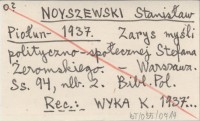 NOYSZEWSKI Stanisław
Piołun- 1937. Zarys myśli
polityczno-społecznej Stefana
Żeromskiego. - Warszawa.
Ss. 94, nlb. 2. Bibl. Pol.
Rec.: WYKA K. 1937...